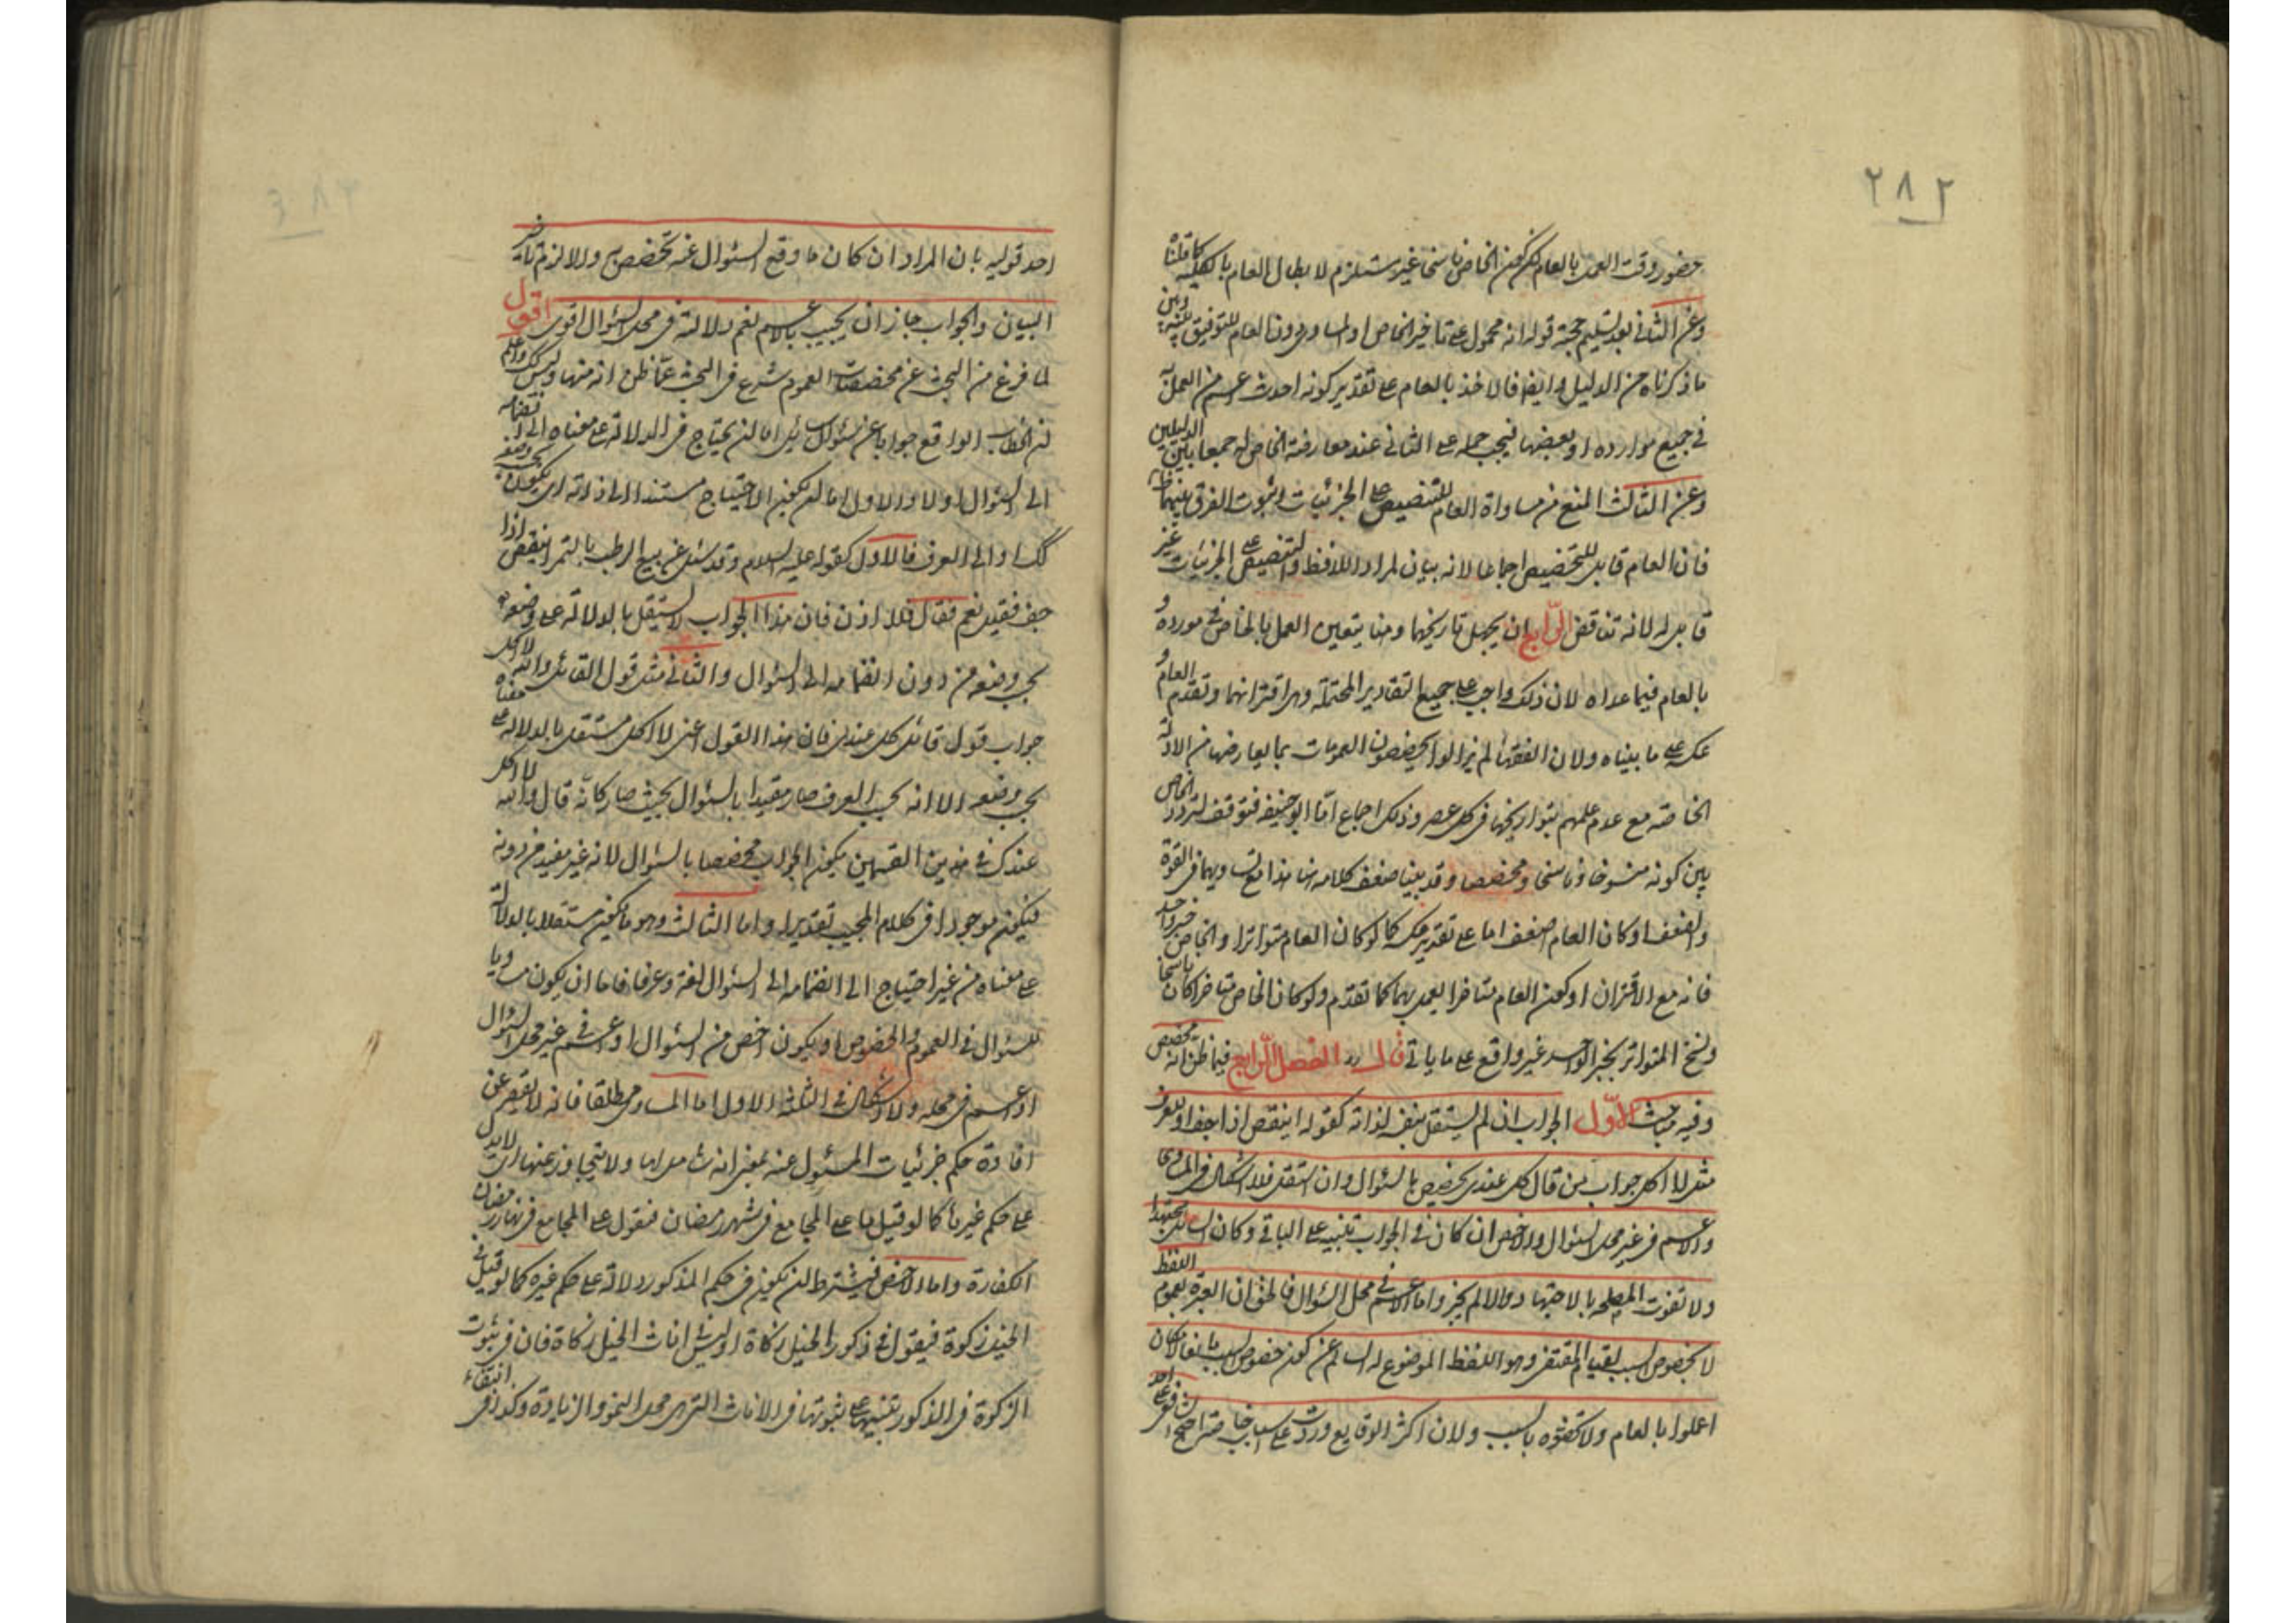 ٢٨٢
حضور وقت العمل بالعام لكن كون الخاص ناسخا غير مستلزم لابطال العام بالكلية كما قلناه
وعن الثانى بعد تسليم حجية قوله انه محمول على تاخير الخاص اولمساوى دون العام للتوفيق بينه وبين
ما ذكرناه من الدليل وايضا فالاخذ بالعام على تقدير كونه احدث اعم من العمل به
فى جميع موارده او بعضها فيجب حمله على الثانى عند معارضة الخاص له جمعا بين الدليلين
وعن الثالث المنع من مساواة العام للتنصيص على الجزئيات لثبوت الفرق بينهما
فان العام قابل للتخصيص اجماعا لانه بيان لمراد اللافظ والتنصيص على الجزئيات غير
قابل له لانه تناقض الرابع ان يجهل تاريخهما وهنا يتعين العمل بالخاص فى مورده و
بالعام فيما عداه لان ذلك واجب على جميع التقادير المحتملة وهى اقترانهما وتقدم العام و
عكسه على ما بيناه ولان الفقها لم يزالوا يخصصون العمومات بما يعارضها من الادلة
الخاصه مع عدم علمهم بتواريخها فى كل عصر وذلك اجماع امّا ابو حنيفه فتوقف لتردد الخاص
بين كونه منسوخا وناسخا ومخصصا وقد بينا ضعف كلامه هنا هذا مع تساويهما فى القوة
والضعف او كان العام اضعف اما على تقدير عكسه كما لو كان العام متواترا والخاص خبر واحد
فانه مع الاقتران او كون العام متاخرا يعمل بهما كما تقدم ولو كان الخاص متاخرا كان ناسخا
ونسخ المتواتر بخبر الواحد غير واقع على ما ياتى قال الفصل الرابع فيما ظن انه مخصص
وفيه مباحث الاول الجواب ان لم يستقل بنفسه لذاته كقوله اينقص اذا جف او للعرف
مثل لا اكل جواب من قال كل عندى تخصص بالسؤال وان استقل فلا اشكال فى المساوى
والاعم فى غير محل السؤال والاخص ان كان فى الجواب تنبيه على الباقى وكان السائل مجتهدا
ولا تفوت المصلحه بالاجتهاد والا لم يجز واما الاعم فى محل السؤال فالحق ان العبرة بعموم اللفظ
لا بخصوص السبب لقيام المقتضى وهو اللفظ الموضوع له السالم عن كون خصوص السبب مانعا لامكان
اعملوا بالعام ولا تخصوه بالسبب ولان اكثر الوقايع وردت على اسباب خاصة احتج الشافعى على احد
احد قوليه بان المراد ان كان ما وقع السئوال عنه تخصص والا لزم تاخير
البيان والجواب جاز ان يجيب بالاعم نعم دلالته فى محل السئوال اقوى اقول
لما فرغ من البحث عن مخصصات العموم شرع فى البحث عما ظن انه منها وليس كذلك واعلم
ان الخطاب الواقع جوابا عن سؤال سائل اما ان يحتاج فى الدلالة على معناه الى انضمامه
الى السئوال اولا والاول اما ان يكون الاحتياج مستندا الى ذاته اى يكون بحسب وضعه
كك او الى العرف فالاول كقوله عليه السلام وقد سئل عن بيع الرطب بالتمر اينقص اذا
جف فقيل نعم فقال فلا اذن فان هذا الجواب لا يستقل بالدلالة على
بحسب وضعه من دون انضمامه الى السئوال والثانى مثل قول القائل والله لا اكل
جواب قول قائل كل عندى فان هذا القول اعنى لا اكل مستقل بالدلالة على معناه
بحسب وضعه الا انه بحسب العرف صار مقيدا بالسئوال بحيث صار كانه قال والله لا اكل
عندك فى هذين القسمين يكون الجواب مخصصا بالسئوال لانه غير مفيد من دونه
فيكون موجودا فى كلام المجيب تقديرا واما الثالث وهو ما يكون مستقلا بالدلالة
على معناه من غير احتياج الى انضمامه الى السئوال لغة وعرفا فاما ان يكون مساويا
للسئوال فى العموم والخصوص او يكون اخص من السئوال او اعم فى غير محل السئوال
او اعم فى محله ولا اشكال فى الثلثه الاول اما المساوى مطلقا فانه لا يقصر عن
افادة حكم جزئيات المسئول عنه بمعنى انه شامل لها ولا يتجاوز عنها اى لا يدل
على حكم غيرها كما لو قيل ما على المجامع فى شهر رمضان فيقول على المجامع فى نهار رمضان
الكفارة واما الاخص فيشترط ان يكون فى حكم المذكور دلالة على حكم غيره كما لو قيل فى
الخيل زكوة فيقول فى ذكور الخيل زكاة او ليس فى اناث الخيل زكاة فان فى ثبوت
الزكوة فى الذكور تنبيها على ثبوتها فى الاناث التى هى محل النمو والزيادة وكذا فى انتفاء